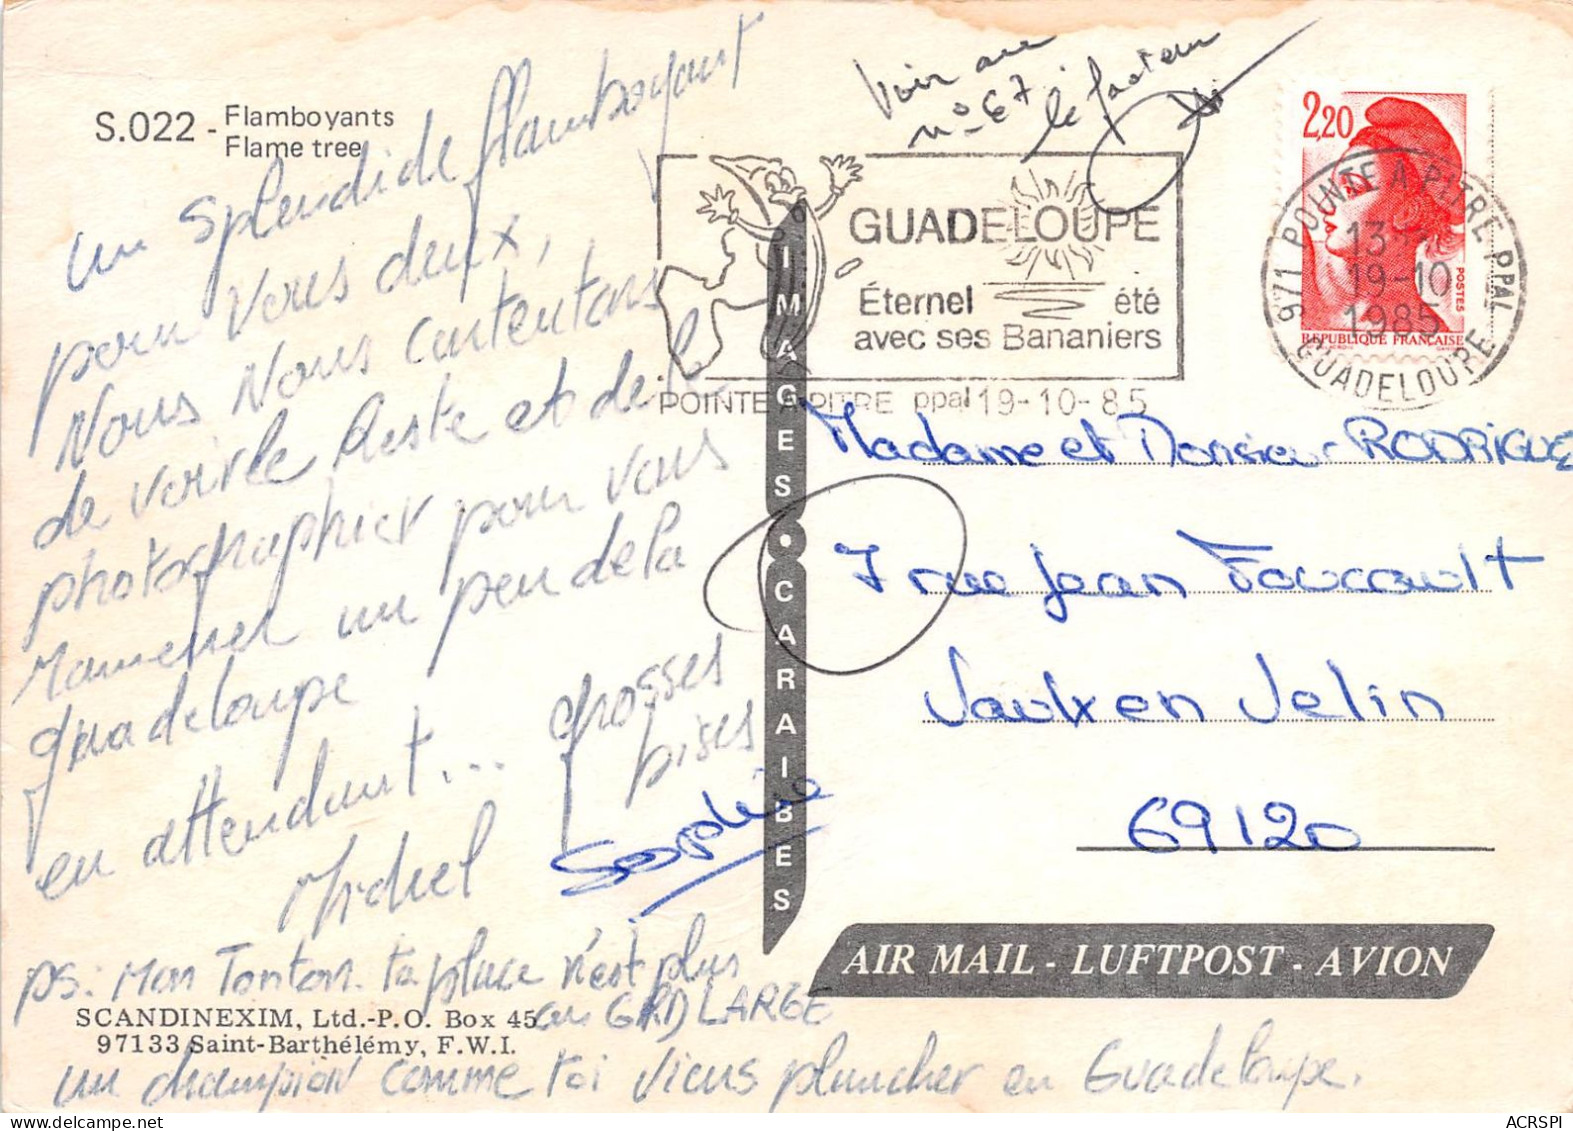 S.022 - Flamboyants
Flame tree
un splendide flamboyant
pour vous deux,
Nous Nous contentons
de voir le reste et de le
photographier pour vous
ramener un peu de la
guadeloupe
en attendant... grosses
bises
Michel
Sophie
ps: Mon Tonton. ta place n'est plus
au GRD LARGE
un champion comme toi viens plumcher en Guadeloupe.
SCANDINEXIM, Ltd.-P.O. Box 45
97133 Saint-Barthélémy, F.W.I.
IMAGES • CARAIBES
Voir au
n° 67
le facteur
GUADELOUPE
Éternel été
avec ses Bananiers
POINTE A PITRE ppal 19-10-85
2,20
POSTES
REPUBLIQUE FRANCAISE
971 POINTE A PITRE PPAL
13
19-10
1985
GUADELOUPE
Madame et Monsieur RODRIGUE
7 rue Jean Foucault
Vaulx en Velin
69120
AIR MAIL - LUFTPOST - AVION
ACRSPI